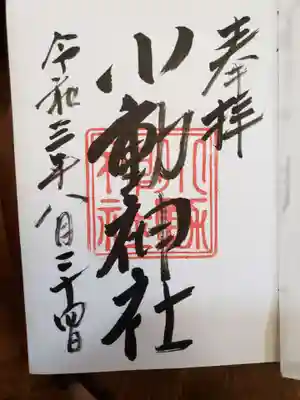 奉拝
小動神社
令和三年八月二十四日